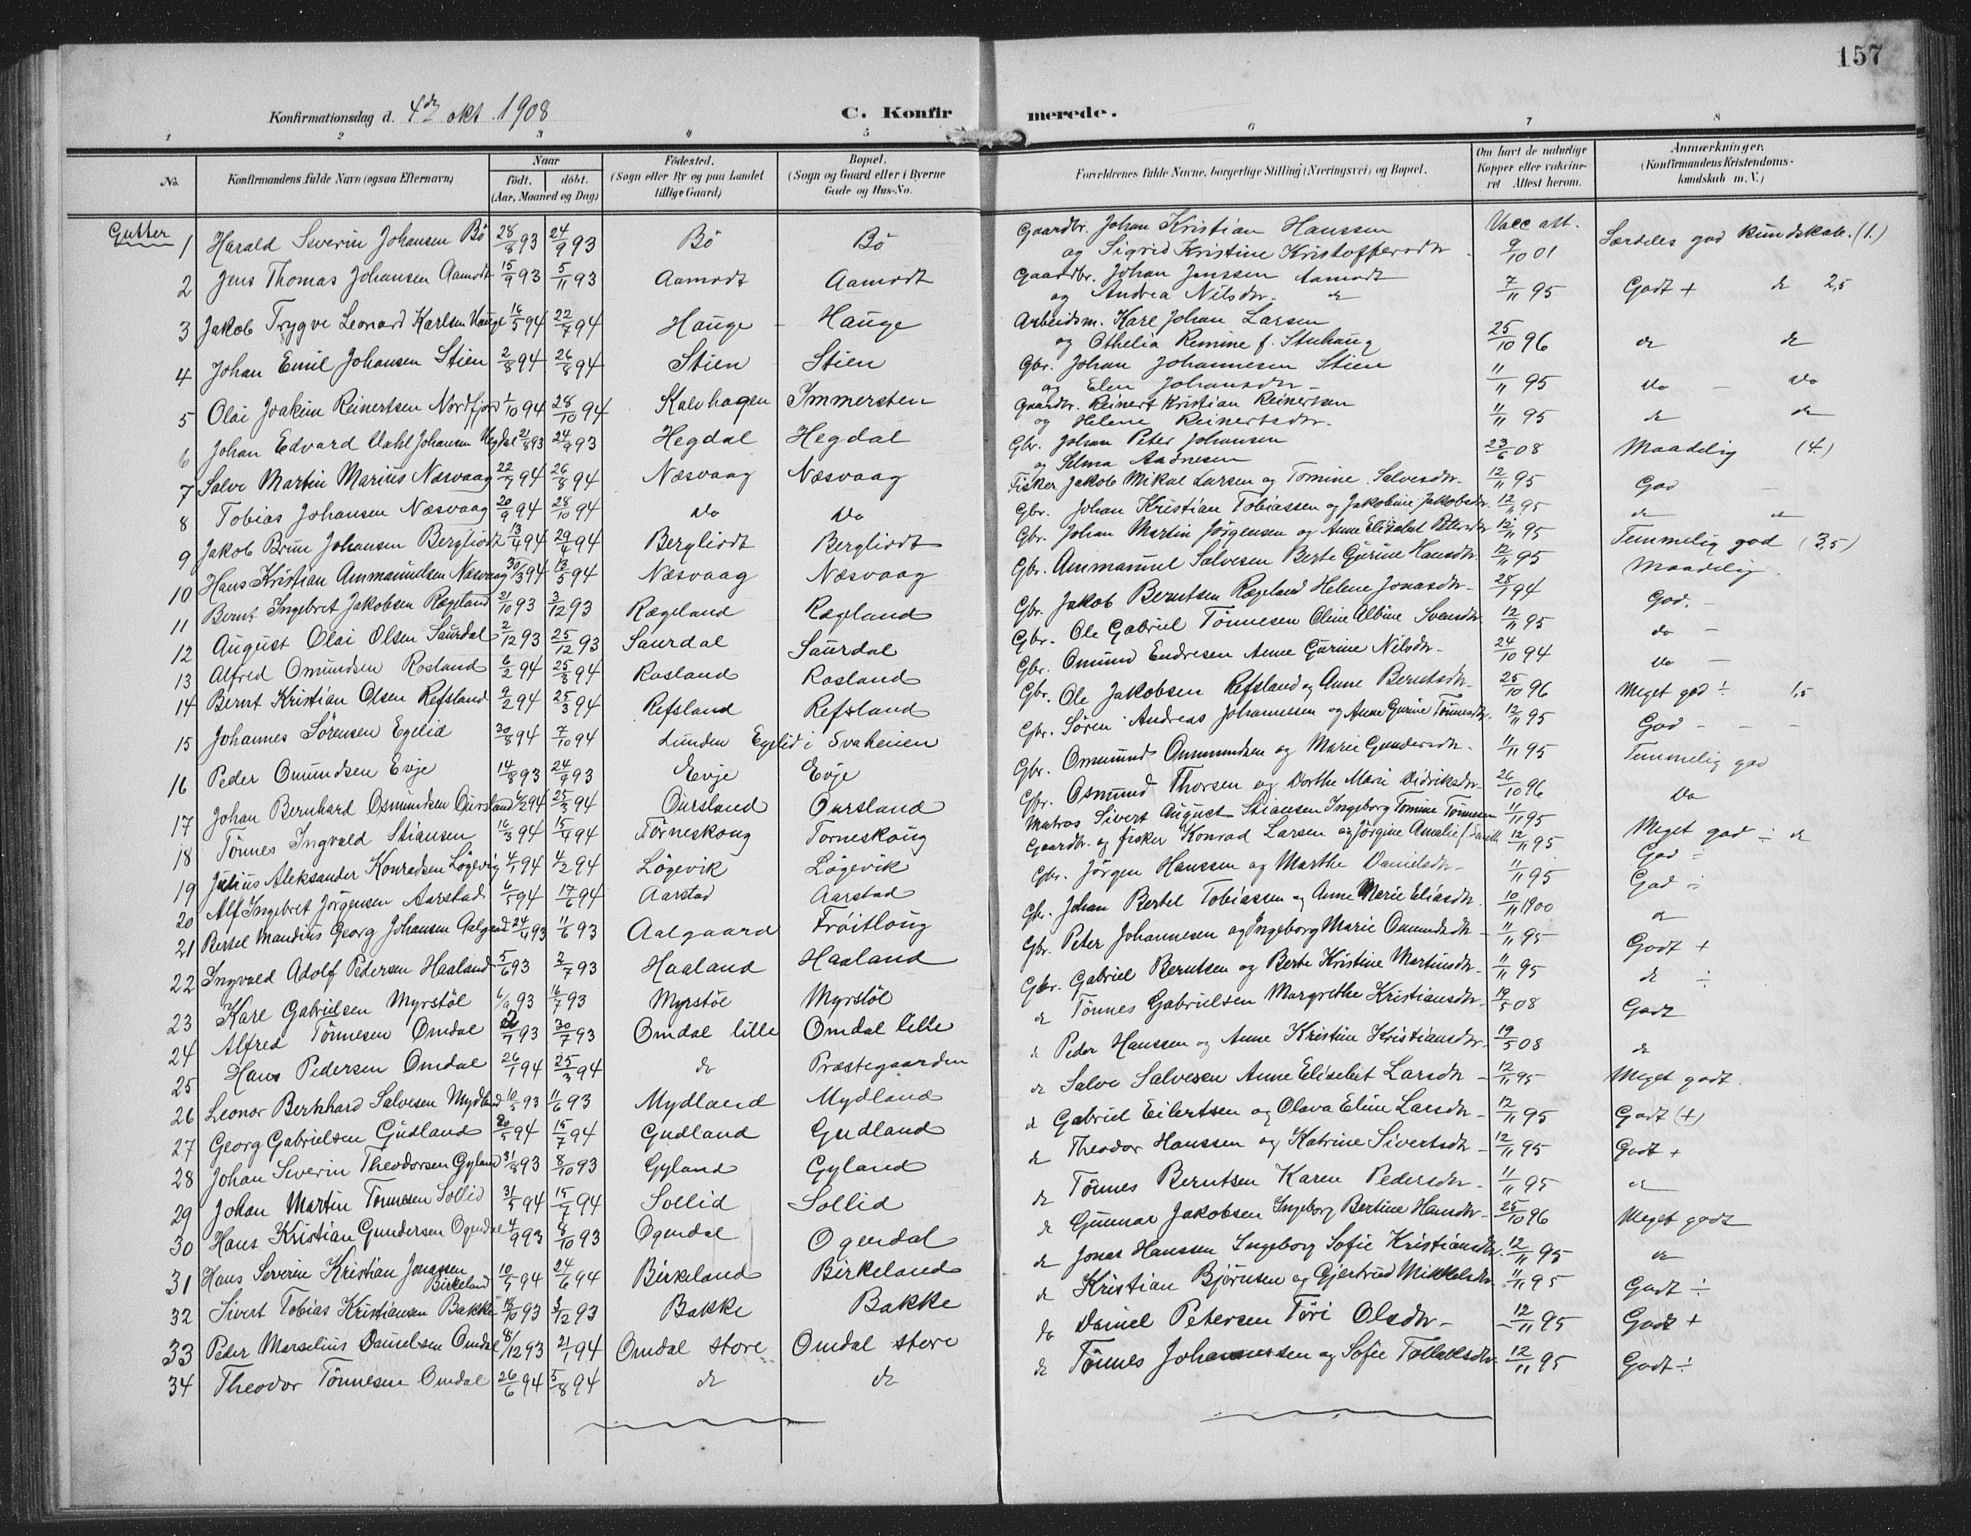 157
Konfirmationsdag d. 4de okt. 1908
C. Konfirmerede.
1 2 3 4 5 6 7 8
No. Konfirmandens fulde Navn (ogsaa Efternavn) Naar født. døbt. (Aar, Maaned og Dag) Fødested. (Sogn eller By og paa Landet tillige Gaard) Bopæl. (Sogn og Gaard eller i Byerne Gade og Hus-No. Forældrenes fulde Navne, borgerlige Stilling (Næringsvei) og Bopæl. Om havt de naturlige Kopper eller vaccineret Attest herom. Anmærkninger. (Konfirmandens Kristendomskundskab m. V.)
Gutter
1 Harald Severin Johansen Bö 28/8 93 24/9 93 Bö Bö Gaardbr. Johan Kristian Hanssen og Sigrid Kristine Kristoffersdtr. Vacc att. 9/10 01 Særdeles god kundskab. (1.)
2 Jens Thomas Johansen Aamodt 15/9 93 5/11 93 Aamodt Aamodt Gaardbr. Johan Jenssen Aamodt og Andrea Nilsdtr. do 7/11 95 Godt + do 2,5
3 Jakob Trygve Leonard Karlsen Hauge 16/5 94 22/7 94 Hauge Hauge Arbeidsm. Karl Johan Larsen og Othelia Remine f. Stuhaug 25/10 96 do do
4 Johan Emil Johansen Stien 2/8 94 26/8 94 Stien Stien Gbr. Johan Johannesen Stien og Elen Johansdtr. 11/11 95 Do - Do
5 Olai Joakim Reinertsen Nordfjord 1/10 94 28/10 94 Kalvhagen Immersten Gaardbr. Reinert Kristian Reinertsen og Helene Reinertsdtr. 11/11 95 do do
6 Johan Edvard Dahl Johansen Hegdal 21/8 93 24/9 93 Hegdal Hegdal Gbr. Johan Peter Johansen og Selma Aadnesen 23/6 08 Maadelig (4)
7 Salve Martin Marius Næsvaag 22/7 94 26/8 94 Næsvaag Næsvaag Fisker Jakob Mikal Larsen og Tomine Salvesdtr. 12/11 95 God -
8 Tobias Johansen Næsvaag 20/9 94 28/10 94 Do Do Gbr. Johan Kristian Tobiassen og Jakobine Jakobsdtr. 12/11 95 do do
9 Jakob Brun Johansen Bergliodt 13/4 94 29/4 94 Bergliodt Bergliodt Gbr. Johan Martin Jörgensen og Anne Elisabet Petersdtr 12/11 95 Temmelig god (3,5)
10 Hans Kristian Ammanuelsen Næsvaag 30/3 94 13/5 94 Næsvaag Næsvaag Gbr. Ammanuel Salvesen Berte Gurine Hansdtr. 12/11 95 Maadelig
11 Bernt Ingebret Jakobsen Rægeland 21/10 93 3/12 93 Rægeland Rægeland Gbr. Jakob Berntsen Rægeland Helene Jonasdtr. 28/1 94 God. -
12 August Olai Olsen Saurdal 2/12 93 25/12 93 Saurdal Saurdal Gbr. Ole Gabriel Tönnesen Oline Albine Svensdtr. 12/11 95 do -
13 Alfred Omundsen Rosland 6/2 94 25/3 94 Rosland Rosland Gbr. Omund Endresen Anne Gurine Nilsdtr. 24/10 94 Do -
14 Bernt Kristian Olsen Refsland 9/2 94 25/3 94 Refsland Refsland Gbr. Ole Jakobsen Refsland og Anne Berntsdtr. 25/10 96 Meget god ÷ 1,5
15 Johannes Sörensen Egelid 30/8 94 7/10 94 Lunden Egelid i Svaheien Gbr. Sören Andreas Johannessen og Anne Gurine Tönnesdtr. 12/11 95 God - - -
16 Peder Omundsen Evje 14/8 93 24/9 93 Evje Evje Gbr. Omund Ommundsen og Marie Gundersdtr. 11/11 95 Temmelig god
17 Johan Bernhard Osmundsen Oursland 6/2 94 25/3 94 Oursland Oursland Gbr. Osmund Thorsen og Dorthe Marie Didriksdtr. 26/10 96 Do
18 Tönnes Ingvald Stiansen 16/3 94 15/4 94 Törneskoug Törneskoug Matros Sivert August Stiansen Ingeborg Tomine Tönnesen 11/11 95 Meget god ÷ do
19 Julius Aleksander Konradsen Lögevig 4/1 94 4/2 94 Lögevik Lögevik Gaardbr. og fisker Konrad Larsen og Jörgine Amalie f. 12/11 95 God ÷
20 Alf Ingebret Jörgensen Aarstad 6/5 94 17/6 94 Aarstad Aarstad Gbr. Jörgen Hanssen og Marthe Danielsdtr. 11/11 95 God ÷
21 Bertel Mandius Georg Johansen Aalgaard 24/4 93 11/6 93 Aalgaard Fröitloug Gbr. Johan Bertel Tobiassen og Anne Marie Eliasdtr. 10/11 1900 do
22 Ingvald Adolf Pedersen Haaland 5/6 93 2/7 93 Haaland Haaland Gbr. Peter Johannesen og Ingeborg Marie Omundsdtr. 11/11 95 Godt +
23 Karl Gabrielsen Myrstöl 93 16/7 93 Myrstöl Myrstöl Gbr. Gabriel Berntsen og Berte Kristine Martinsdtr. 11/11 95 do ÷
24 Alfred Tönnesen Omdal 2/7 93 30/7 93 Omdal lille Omdal lille do Tönnes Gabrielsen Margrethe Kristiansdtr. 19/5 08 Godt
25 Hans Pedersen Omdal 26/1 94 25/3 94 do Præstegaarden do Peder Hanssen og Anne Kristine Kristiansdtr. 19/5 08 do
26 Leonor Bernhard Salvesen Mydland 10/5 93 11/6 93 Mydland Mydland do Salve Salvesen Anne Elisebet Larsdtr. 12/11 95 Meget godt.
27 Georg Gabrielsen Gudland 20/5 94 15/7 94 Gudland Gudland do Gabriel Eilertsen og Olava Eline Larsdtr. 12/11 95 Godt (+)
28 Johan Severin Theodorsen Gyland 31/8 93 8/10 93 Gyland Gyland do Theodor Hanssen og Katrine Sivertsdtr. 12/11 95 Godt +
29 Johan Martin Tönnesen Sollid 31/5 94 15/7 94 Sollid Sollid do Tönnes Berntsen Karen Pedersdtr. 11/11 95 do
30 Hans Kristian Gundersen Ogendal 4/9 93 8/10 93 Ogendal Ogendal do Gunnar Jakobsen Ingeborg Bertine Hansdtr. 25/10 96 Meget godt
31 Hans Severin Kristian Jonassen Birkeland 10/5 94 24/6 94 Birkeland Birkeland do Jonas Hanssen Ingeborg Sofie Kristiansdtr. 12/11 95 do
32 Sivert Tobias Kristiansen Bakke 14/10 93 3/12 93 Bakke Bakke do Kristian Björnsen og Gjertrud Mikkelsdtr. 11/11 95 Godt ÷
33 Peder Marselius Danielsen Omdal 8/12 93 21/1 94 Omdal store Omdal store do Daniel Petersen Töri Olsdtr. 12/11 95 Godt +
34 Theodor Tönnesen Omdal 26/6 94 5/8 94 do do do Tönnes Johannessen og Sofie Tollaksdtr. 12/11 95 Godt ÷